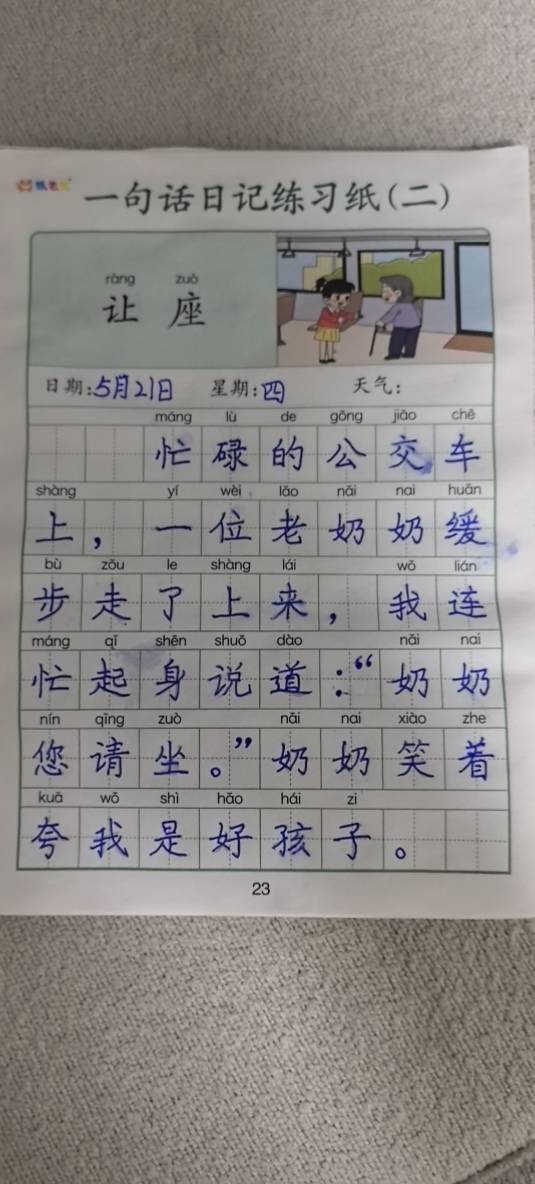 一句话日记练习纸(二)
ràng zuò
让 座
日期:5月21日 星期:四 天气:
máng lù de gōng jiāo chē
忙碌的公交车
shàng yí wèi lǎo nǎi nai huǎn
上,一位老奶奶缓
bù zǒu le shàng lái wǒ lián
步走了上来,我连
máng qǐ shēn shuō dào nǎi nai
忙起身说道:“奶奶
nín qǐng zuò nǎi nai xiào zhe
您请坐。”奶奶笑着
kuā wǒ shì hǎo hái zi
夸我是好孩子。
23